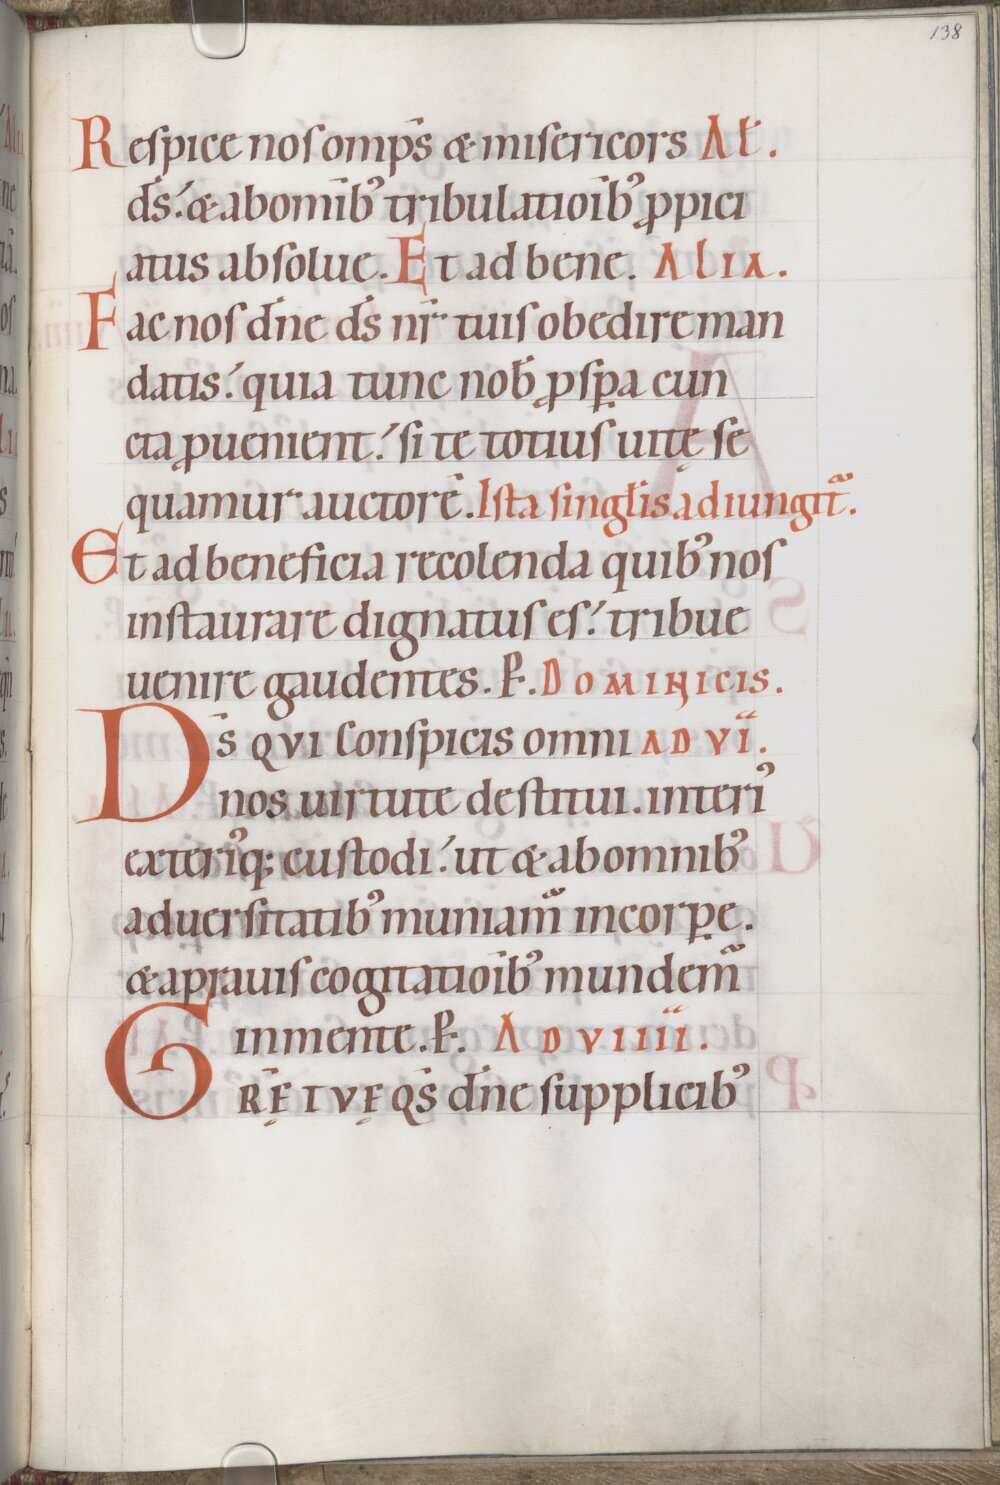 138
Respice nos omp̄s & misericors Al̄.
d̄s. & ab om̄ib᾿ tribulatiōib᾿ ꝓpici
atus absolue. Et ad bene. Alia.
Fac nos dn̄e d̄s nr̄ tuis obedire man
datis. quia tunc nob̄ ꝓsꝑa cun
cta ꝓuenient. si te totius uitę se
quamur auctorē. Ista singl̄is adiungit᷑.
Et ad beneficia recolenda quib᾿ nos
instaurare dignatus es. tribue
uenire gaudentes. P̄. DOMINICIS.
D̄S QVI Conspicis omni AD VI.
nos uirtute destitui. interi᾿
exteri᾿q; custodi. ut & ab omnib᾿
aduersitatib᾿ muniam᷑ in corꝑe.
& a prauis cogitatiōib᾿ mundem᷑
in mente. P̄. AD VIIII.
GRĒ TVĘ QS̄ dn̄e supplicib᾿